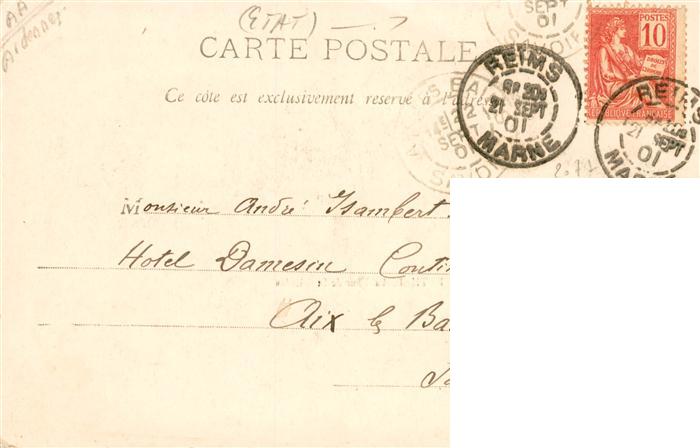 AA
Ardennes
(ETAT)
CARTE POSTALE
Ce côte est exclusivement reservé à l'adresse
SEPT
01
SAVOIE
REIMS
21 SEPT
01
MARNE
POSTES
10
DROITS DE L'HOMME
REPUBLIQUE FRANÇAISE
REIMS
21 SEPT
01
MAR
Monsieur André Isambert
Hotel Damesin Conti
Aix les Ba